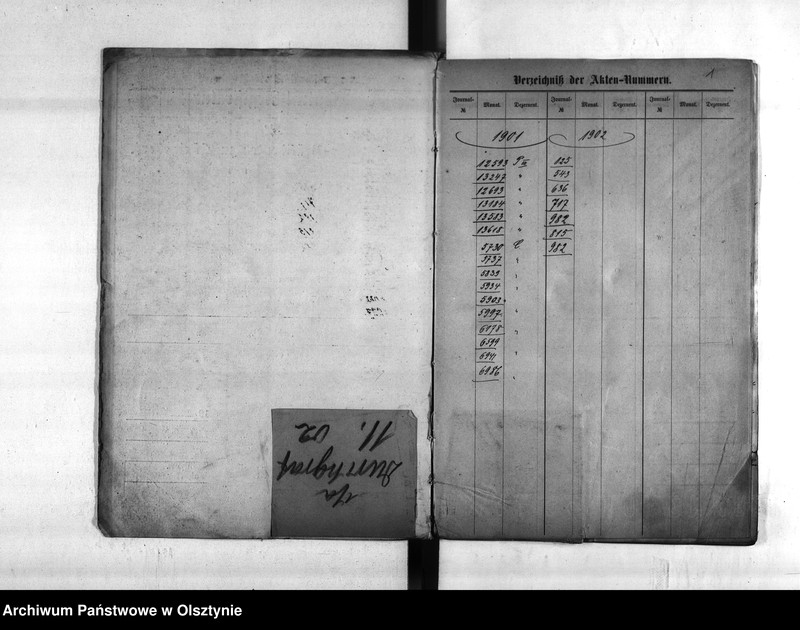 1
Verzeichniß der Akten-Nummern.
Journal-№ Monat. Dezernent. Journal-№ Monat. Dezernent. Journal-№ Monat. Dezernent.
1901 1902
12593 125
13247 " 543
12693 " 636
13184 " 787
13583 " 982
13618 " 815
5730 C. 982
5737 "
5839 "
5934 "
5903 "
5997 "
6178 "
6599 "
6941 "
6986 "
11. 02
Archiwum Państwowe w Olsztynie